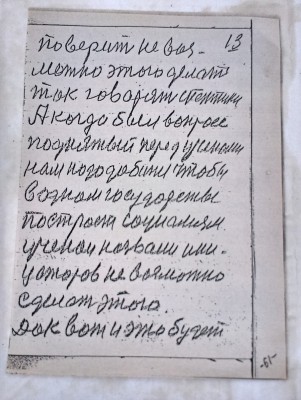 13
поверит не воз-
можно этого делат
так говорят скептики
А когда был вопросс
поднятый перед учеными
нам надо добится чтобы
в одном государстве
построит социализм
ученои назвали ини-
циаторов не возможно
сделат этого.
Дак вот и это будет
-61-